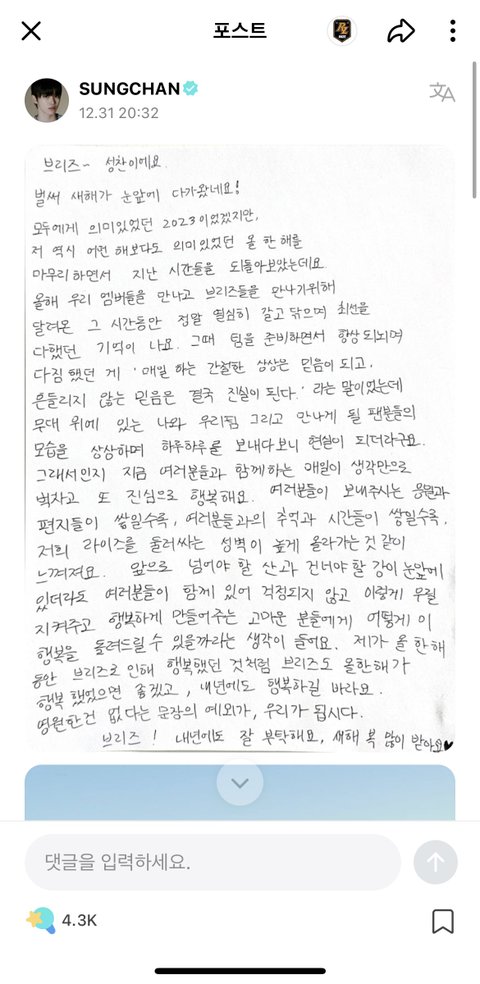 포스트
SUNGCHAN
12.31 20:32
브리즈~ 성찬이에요.
벌써 새해가 눈앞에 다가왔네요!
모두에게 의미있었던 2023이었겠지만,
저 역시 어떤 해보다도 의미있었던 올 한 해를
마무리하면서 지난 시간들을 되돌아보았는데요
올해 우리 멤버들을 만나고 브리즈들을 만나기위해
달려온 그 시간동안 정말 열심히 갈고 닦으며 최선을
다했던 기억이 나요. 그때 팀을 준비하면서 항상 되뇌며
다짐했던 게 '매일 하는 간절한 상상은 믿음이 되고,
흔들리지 않는 믿음은 결국 진실이 된다.' 라는 말이었는데
무대 위에 있는 나와 우리팀 그리고 만나게 될 팬분들의
모습을 상상하며 하루하루를 보내다보니 현실이 되더라구요.
그래서인지 지금 여러분들과 함께하는 매일이 생각만으로
벅차고 또 진심으로 행복해요. 여러분들이 보내주시는 응원과
편지들이 쌓일수록, 여러분들과의 추억과 시간들이 쌓일수록,
저희 라이즈를 둘러싸는 성벽이 높게 올라가는 것 같이
느껴져요. 앞으로 넘어야 할 산과 건너야할 강이 눈앞에
있더라도 여러분들이 함께 있어 걱정되지 않고 이렇게 우릴
지켜주고 행복하게 만들어주는 고마운 분들에게 어떻게 이
행복을 돌려드릴 수 있을까라는 생각이 들어요. 제가 올 한해
동안 브리즈로 인해 행복했던 것처럼 브리즈도 올한해가
행복 했었으면 좋겠고, 내년에도 행복하길 바라요.
영원한건 없다는 문장의 예외가, 우리가 됩시다.
브리즈! 내년에도 잘 부탁해요, 새해 복 많이 받아요♥
댓글을 입력하세요.
4.3K